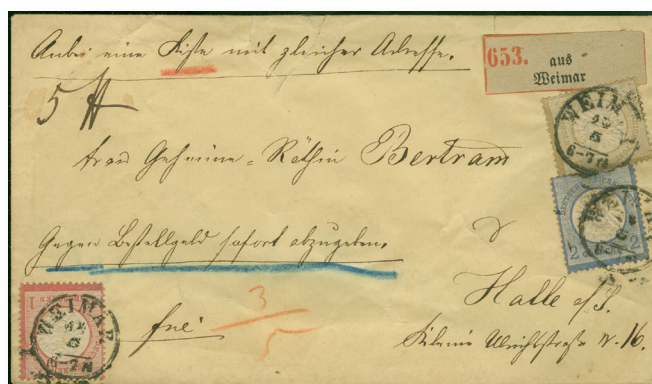 Anbei eine Kiste mit gleicher Adresse.
653. aus
Weimar
5 ℔
WEIMAR
6-7 N
Frau Geheime-Räthin Bertram
2 2
Gegen Bestellgeld sofort abzugeben.
Halle a/S.
1
WEIMAR
6-7 N
frei
3
5
Kleine Ulrichstraße N. 16.